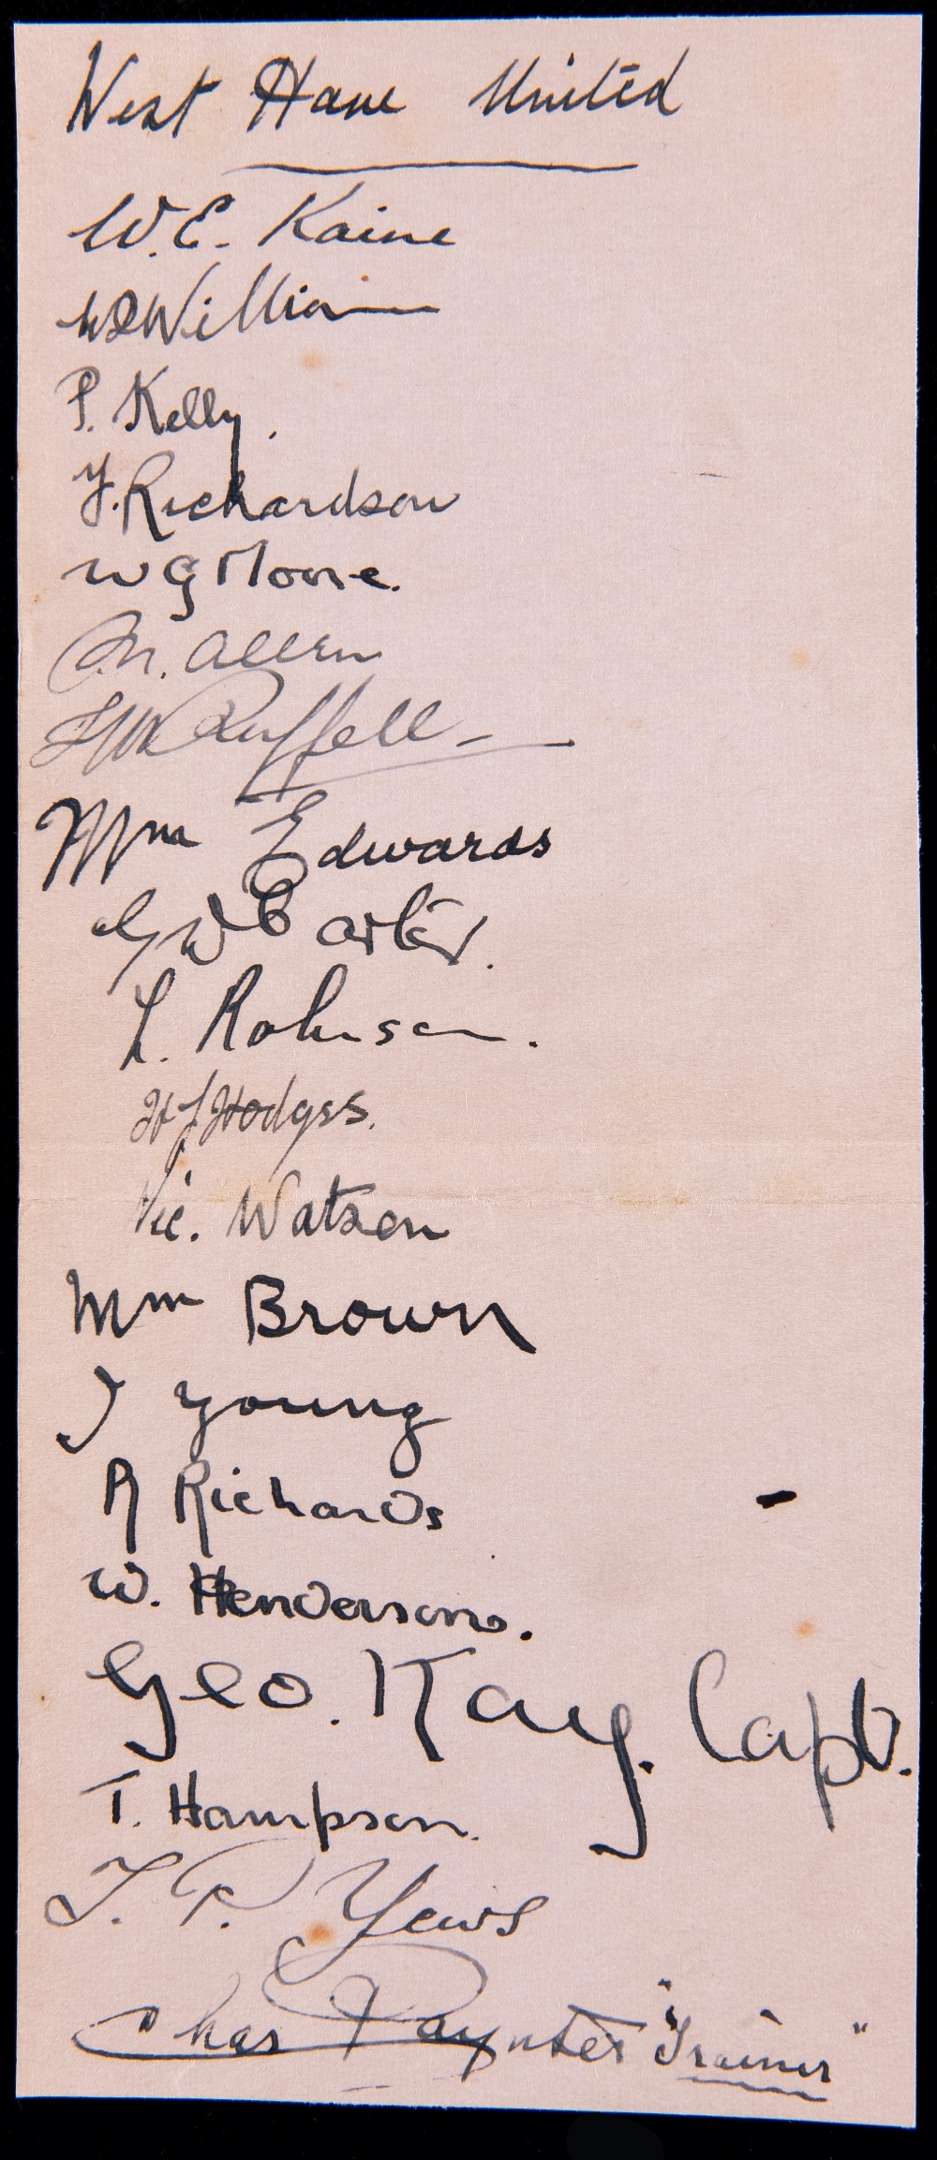 West Ham United
W.E. Kaine
W Williams
P. Kelly.
F. Richardson
W G Moore.
P.M. Allen
J W Ruffell
Wm Edwards
G W Carter.
L. Robinson.
H J Hodges.
Vic. Watson
Wm Brown
J Young
R Richards
W. Henderson.
Geo. Kay. Capt.
T. Hampson.
T. P. Yews
Chas Paynter "Trainer"